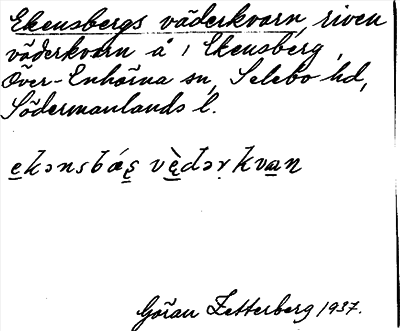 Ekensbergs väderkvarn, riven
väderkvarn å 1 Ekensberg,
Över-Enhörna sn, Selebo hd,
Södermanlands l.
Göran Zetterberg 1937.